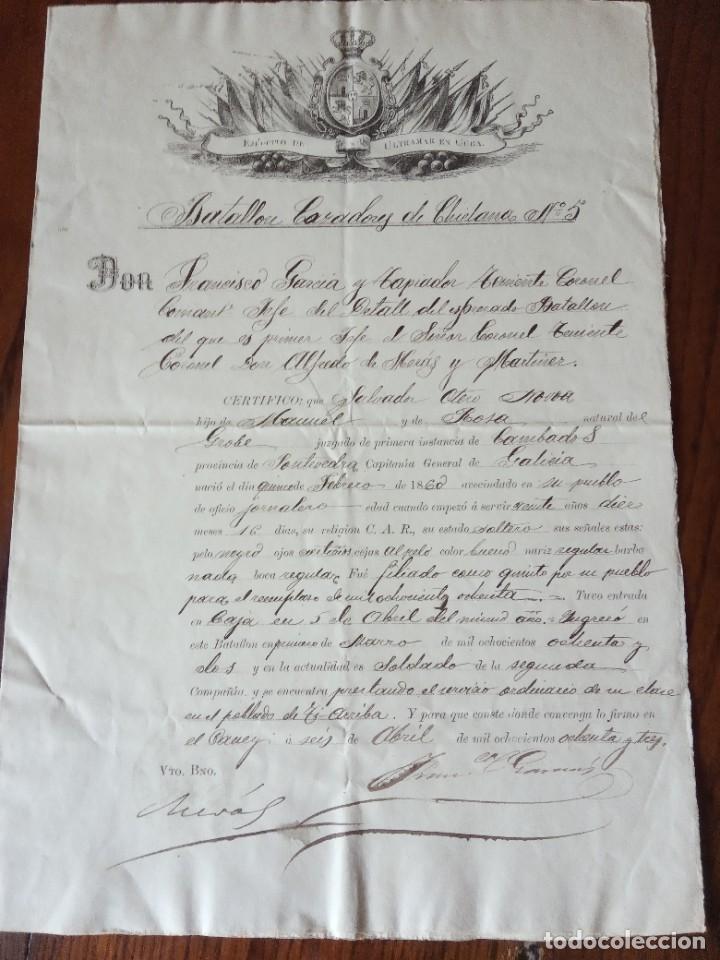 EJÉRCITO DE ULTRAMAR EN CUBA.
Batallon Cazadores de Chiclana Nº 5º
Don Francisco Garcia y Tapiador Teniente Coronel
Comant. Jefe del Detall del espresado Batallon
del que es primer Jefe el Señor Coronel Teniente
Coronel Don Alfredo de Merás y Martinez.
CERTIFICO: que Salvador Otero
hijo de Manuel y de Rosa natural de
Grobe juzgado de primera instancia de Cambados
provincia de Pontevedra Capitanía General de Galicia
nació el dia quince de Febrero de 1860 avecindado en su pueblo
de oficio jornalero edad cuando empezó á servir veinte años diez
meses 16 dias, su religion C. A. R., su estado soltero sus señales estas:
pelo negro ojos castaños cejas al pelo color bueno nariz regular barba
nada boca regular Fué filiado como quinto por su pueblo
para el reemplazo de mil ochocientos ochenta Tuvo entrada
en Caja en 5 de Abril del mismo año. Ingresó
en este Batallon en primero de Marzo de mil ochocientos ochenta y
dos y en la actualidad es Soldado de la segunda
Compañia y se encuentra prestando el servicio ordinario de su clase
en el poblado de Ti-Arriba. Y para que conste donde convenga lo firmo en
el Caney á seis de Abril de mil ochocientos ochenta y tres.
VTO. BNO.
Merás
todocoleccion.net